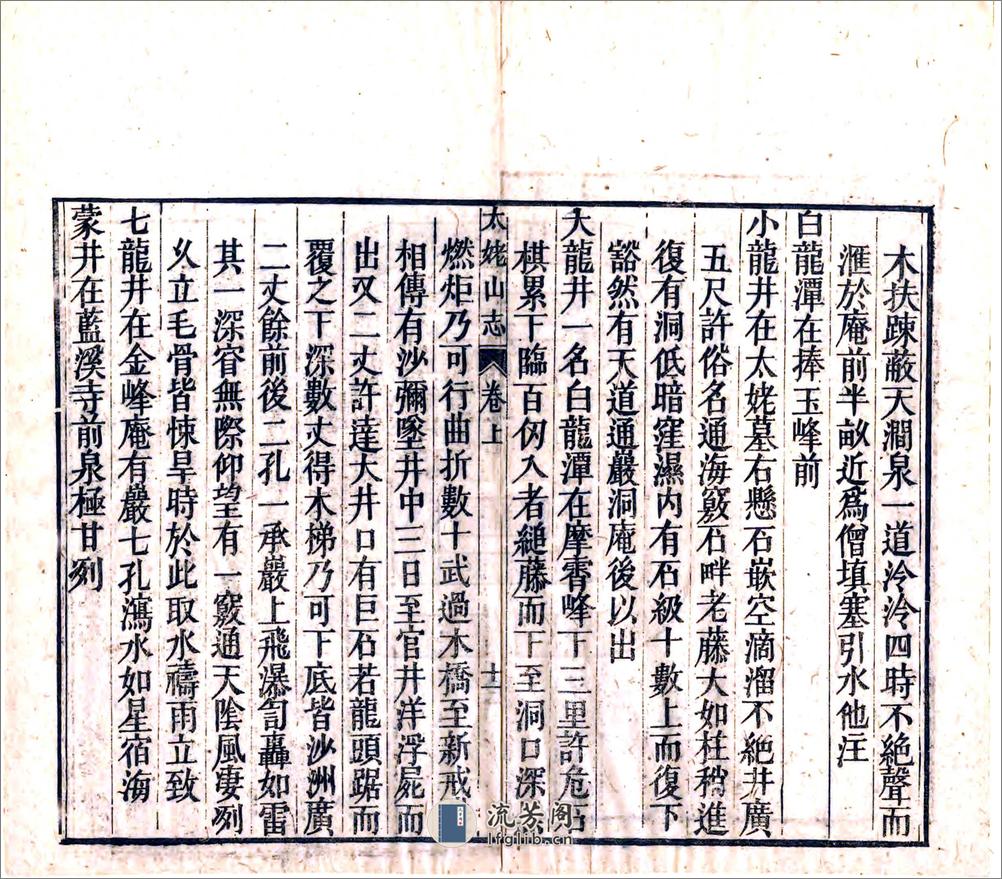 木扶疎蔽天澗泉一道泠泠四時不絶聲而
滙於庵前半畝近爲僧填塞引水他注
白龍潭在捧玉峰前
小龍井在太姥墓石懸石嵌空滴溜不絶井廣
五尺許俗名通海竅石畔老藤大如柱稍進
復有洞低暗窪濕内有石級十數上而復下
豁然有天道通巖洞庵後以出
大龍井一名白龍潭在摩霄峰下三里許危石
棋累下臨百仞入者縋藤而下至洞口深
太姥山志 卷上 十二
燃炬乃可行曲折數十武過木橋至新戒
相傳有沙彌墜井中三日至官井洋浮屍而
出又二丈許達大井口有巨石若龍頭踞而
覆之下深數丈得木梯乃可下底皆沙洲廣
二丈餘前後二孔一承巖上飛瀑訇轟如雷
其一深窅無際仰望有一竅通天陰風凄列
乆立毛骨皆悚旱時於此取水禱雨立致
七龍井在金峰庵有巖七孔瀉水如星宿海
蒙井在藍溪寺前泉極甘冽
流芳阁
lfglib.cn